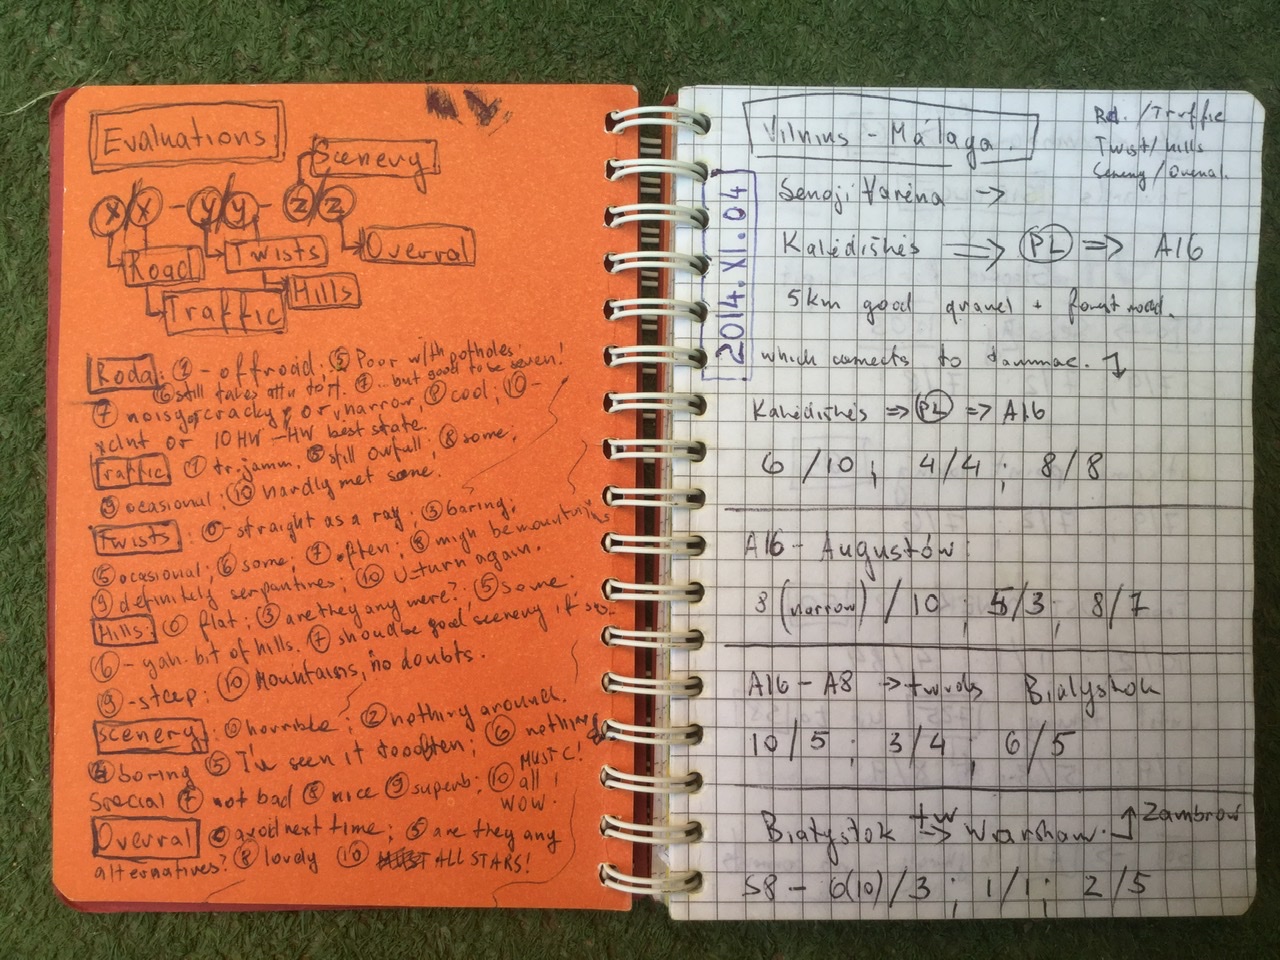 Evaluations.
Scenery
X/X - y/y - z/z
Road
Twists
Overral
Traffic
Hills
Roda: 1 - offroad. 5 Poor with potholes.
6 still takes attn to it. 7 ...but good to be seven!
7 noisy, cracky, or narrow, 8 cool, 10 -
xclnt or 10HW - HW best state.
Traffic 1 tr. jamm. 5 still owfull; 8 some;
9 ocasional; 10 hardly met some.
Twists: 0 - straight as a ray; 3 boring;
5 ocasional; 6 some; 7 often; 8 migh be mountains
9 definitely serpantines; 10 U-turn again.
Hills: 0 flat; 3 are they any were?; 5 some;
6 - yah. bit of hills. 7 shoud be good scenery if
9 - steep; 10 Mountains, no doubts.
Scenery: 0 horrible; 2 nothing around.
4 boring 5 I'v seen it toooften; 6 nothing
special 7 not bad 8 nice 9 superb; 10 all!
MUSIC!
WOW.
Overral 0 avoid next time; 5 are they any
alternatives? 8 lovely 10 ALL STARS!
Vilnius - Málaga.
Rd. / Traffic
Twist / hills
Scenery / Overal.
2014.XI.04
Senoji Varėna →
Kalėdiškės ⇒ PL ⇒ A16
5km good gravel + forest road.
which connects to tarmac.
Kalėdiškės ⇒ PL ⇒ A16
6 / 10 ; 4 / 4 ; 8 / 8
A16 - Augustów:
8 (narrow) / 10 ; 5/3 ; 8/7
A16 - A8 → twrds Bialystok
10 / 5 ; 3 / 4 ; 6 / 5
Białystok tw → Warshaw. Zambrow
S8 - 6(10) / 3 ; 1 / 1 ; 2 / 5